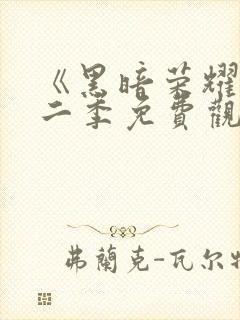 《黑暗荣耀
二季免費觀
弗蘭克-瓦尔特